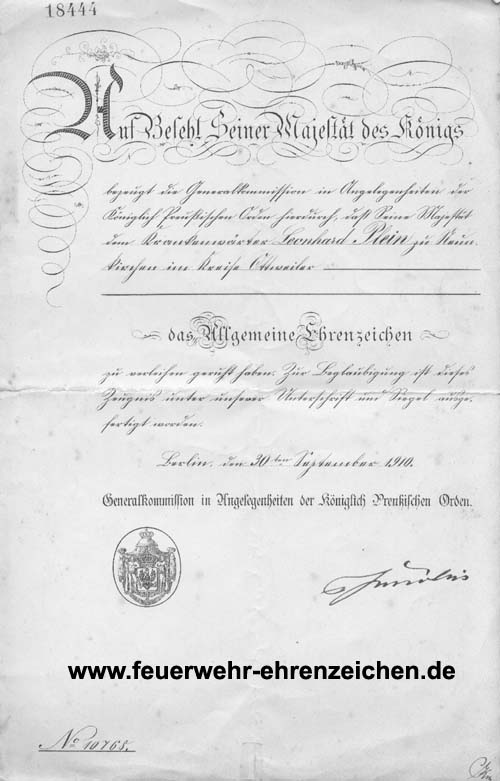 18444
Auf Befehl Seiner Majestät des Königs
bezeugt die Generalkommission in Angelegenheiten der
Königlich Preußischen Orden hierdurch, daß Seine Majestät
dem Krankenwärter Leonhard Plein zu Neun-
kirchen im Kreise Ottweiler
das Allgemeine Ehrenzeichen
zu verleihen geruht haben. Zur Beglaubigung ist dieses
Zeugnis unter unserer Unterschrift und Siegel ausge-
fertigt worden.
Berlin, den 30ten September 1910.
Generalkommission in Angelegenheiten der Königlich Preußischen Orden.
www.feuerwehr-ehrenzeichen.de
No 10768.